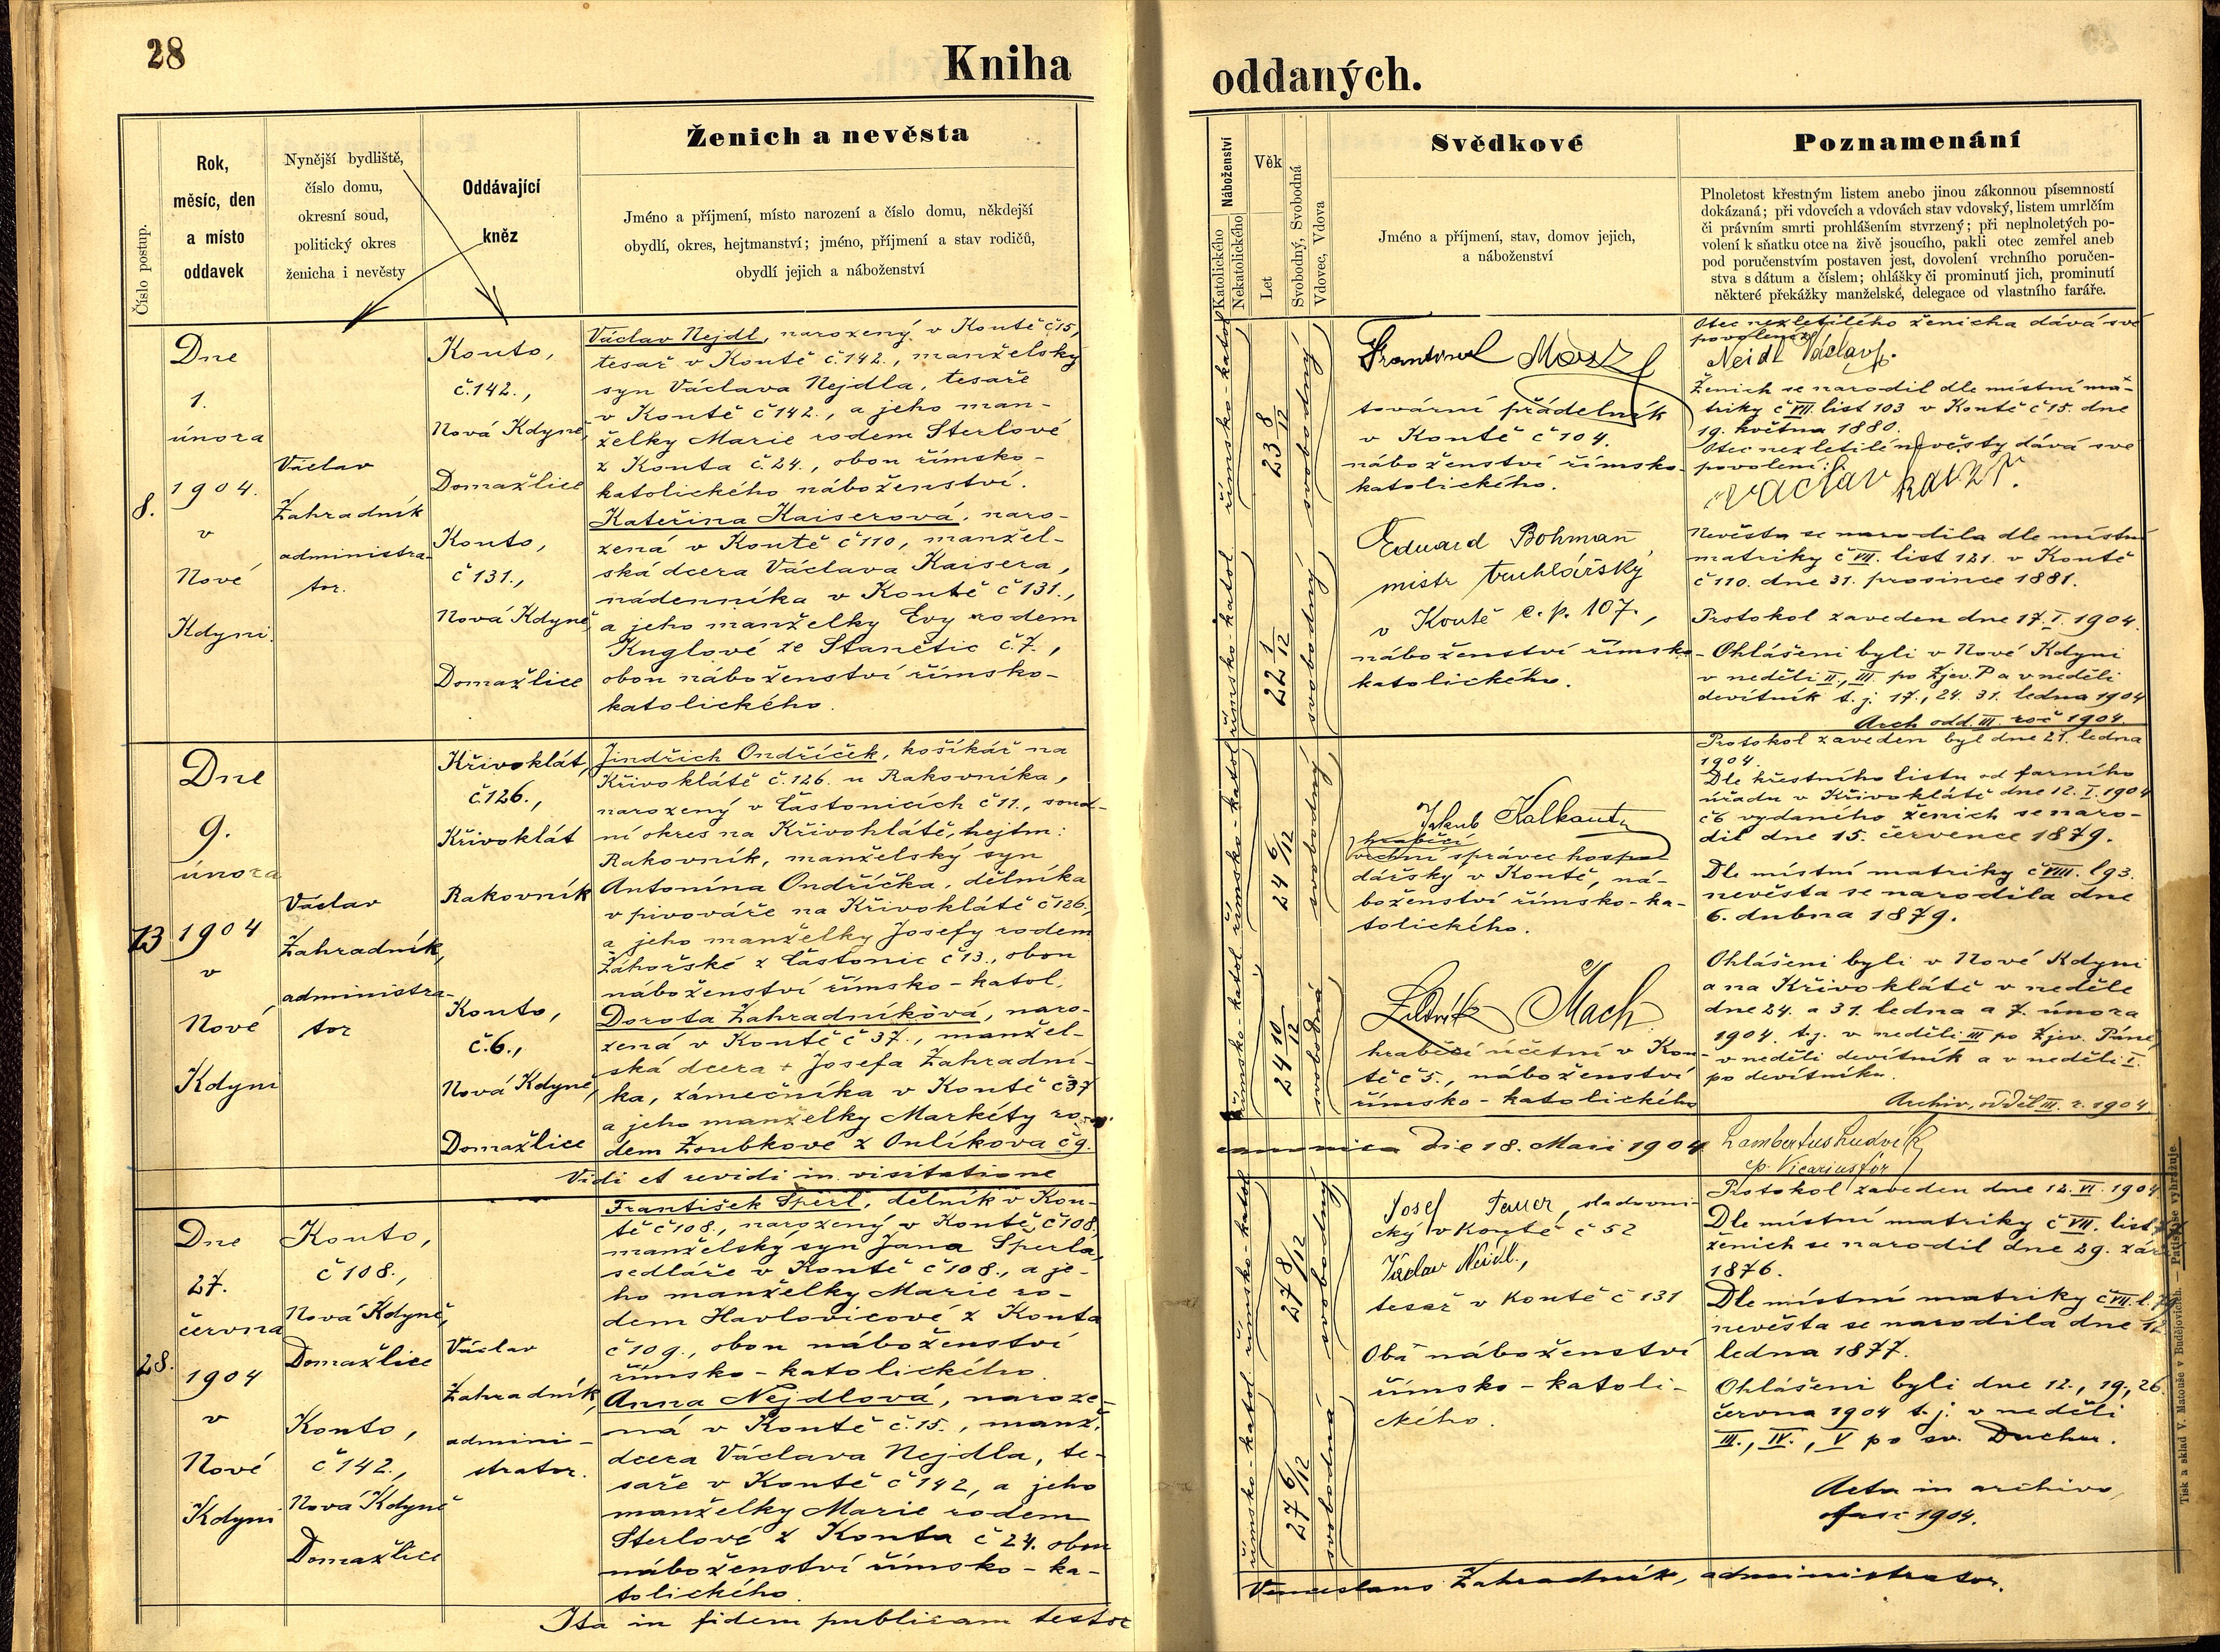 28
Kniha
Číslo postup.
Rok,
měsíc, den
a místo
oddavek
Nynější bydliště,
číslo domu,
okresní soud,
politický okres
ženicha i nevěsty
Oddávající
kněz
Ženich a nevěsta
Jméno a příjmení, místo narození a číslo domu, někdejší
obydlí, okres, hejtmanství; jméno, příjmení a stav rodičů,
obydlí jejich a náboženství
8.
Dne
1.
února
1904.
v
Nové
Kdyni.
Václav
Zahradník
administra-
tor.
Kouto,
č.142.,
Nová Kdyně,
Domažlice
Kouto,
č 131.,
Nová Kdyně,
Domažlice
Václav Nejdl, narozený v Koutě č15,
tesař v Koutě č.142., manželský
syn Václava Nejdla, tesaře
v Koutě č 142., a jeho man-
želky Marie rodem Sterlové
z Kouta č. 24., obou římsko-
katolického náboženství.
Kateřina Kaiserová, naro-
zená v Koutě č 110, manžel-
ská dcera Václava Kaisera,
nádenníka v Koutě č 131.,
a jeho manželky Evy rodem
Kuglové ze Stanětic č. 7.,
obou náboženství římsko-
katolického.
13
Dne
9.
února
1904
v
Nové
Kdyni
Václav
Zahradník,
administra-
tor
Křivoklát,
č.126.,
Křivoklát
Rakovník
Kouto,
č.6.,
Nová Kdyně,
Domažlice
Jindřich Ondříček, košíkář na
Křivoklátě č. 126. u Rakovníka,
narozený v Částonicích č 11., soud-
ní okres na Křivoklátě, hejtm:
Rakovník, manželský syn
Antonína Ondříčka, dělníka
v pivováře na Křivoklátě č 126.,
a jeho manželky Josefy rodem
Záhořské z Částonic č 13., obou
náboženství římsko-katol.
Dorota Zahradníková, naro-
zená v Koutě č 37., manžel-
ská dcera + Josefa Zahradní-
ka, zámečníka v Koutě č 37
a jeho manželky Markéty ro-
dem Zoubkové z Oulíkova č 9.
Vidi et revidi in visitatione
28.
Dne
27.
června
1904
v
Nové
Kdyni
Kouto,
č 108.,
Nová Kdyně,
Domažlice
Kouto,
č 142.,
Nová Kdyně
Domažlice
Václav
Zahradník,
admini-
strator.
František Sperl, dělník v Kou-
tě č 108., narozený v Koutě, č 108,
manželský syn Jana Sperla,
sedláře v Koutě č 108., a je-
ho manželky Marie ro-
dem Havlovicové z Kouta
č 109., obou náboženství
římsko-katolického.
Anna Nejdlová, naroze-
ná v Koutě č. 15., manž.
dcera Václava Nejdla, te-
saře v Koutě č 142, a jeho
manželky Marie rodem
Sterlové z Kouta č 24. obou
náboženství římsko-ka-
tolického.
Ita in fidem publicam testor
oddaných.
Náboženství
Katolického
Nekatolického
Věk
Let
Svobodný, Svobodná
Vdovec, Vdova
Svědkové
Jméno a příjmení, stav, domov jejich,
a náboženství
Poznamenání
Plnoletost křestným listem anebo jinou zákonnou písemností
dokázaná; při vdovcích a vdovách stav vdovský, listem umrlčím
či právním smrti prohlášením stvrzený; při neplnoletých po-
volení k sňatku otce na živě jsoucího, pakli otec zemřel aneb
pod poručenstvím postaven jest, dovolení vrchního poručen-
stva s dátum a číslem; ohlášky či prominutí jich, prominutí
některé překážky manželské, delegace od vlastního faráře.
římsko-katol
23 8/12
svobodný
římsko-katol
22 1/12
tovární přádelník
v Koutě č 104.
náboženství římsko-
katolického.
Eduard Bohman,
mistr truhlářský
v Koutě č.p. 107.,
náboženství římsko-
katolického.
Otec nezletilého ženicha dává své
povolení:
Neidl Václav.
Ženich se narodil dle místní ma-
triky č VII. list 103 v Koutě č 15. dne
19. května 1880.
Otec nezletilé nevěsty dává své
povolení:
Nevěsta se narodila dle místní
matriky č VII. list 121. v Koutě
č 110. dne 31. prosince 1881.
Protokol zaveden dne 17. I. 1904.
Ohlášeni byli v Nové Kdyni
v neděli II., III. po Zjev. P a v neděli
devítník t. j. 17., 24. 31. ledna 1904
Arch odd. III. roč 1904.
římsko-katol
24 6/12
svobodný
římsko-katol
24 10/12
svobodná
Jakub Kalkant
hraběcí
vrchní správce hospo-
dářský v Koutě, ná-
boženství římsko-ka-
tolického.
Ludvík Mach
hraběcí účetní v Kou-
tě č 5., náboženství
římsko-katolického
Protokol zaveden byl dne 21. ledna
1904.
Dle křestního listu od farního
úřadu v Křivoklátě dne 12. I. 1904
č 6 vydaného ženich se naro-
dil dne 15. července 1879.
Dle místní matriky č VIII. l 93.
nevěsta se narodila dne
6. dubna 1879.
Ohlášeni byli v Nové Kdyni
a na Křivoklátě v neděle
dne 24. a 31. ledna a 7. února
1904. t.j. v neděli III po Zjev. Páně,
v neděli devítník a v neděli I.
po devítníku.
Archiv, odděl III. r. 1904
canonica die 18. Maii 1904
Lambertus Ludvík
římsko-katol
27 8/12
svobodný
římsko-katol
27 6/12
svobodná
Josef Pauer, sladovni-
cký v Koutě č 52
Václav Neidl,
tesař v Koutě č 131
Oba náboženství
římsko-katoli-
ckého.
Protokol zaveden dne 12. VI. 1904
Dle místní matriky č VII. list
ženich se narodil dne 29. září
1876.
Dle místní matriky č VII. l.
nevěsta se narodila dne
ledna 1877.
Ohlášeni byli dne 12., 19., 26.
června 1904 t. j. v neděli
III., IV., V po sv. Duchu.
Acta in archivo,
fasc 1904.
Venceslaus Zahradník, administrator.
Tisk a sklad V. Matouše v Budějovicích. — Patisk se vyhražuje.